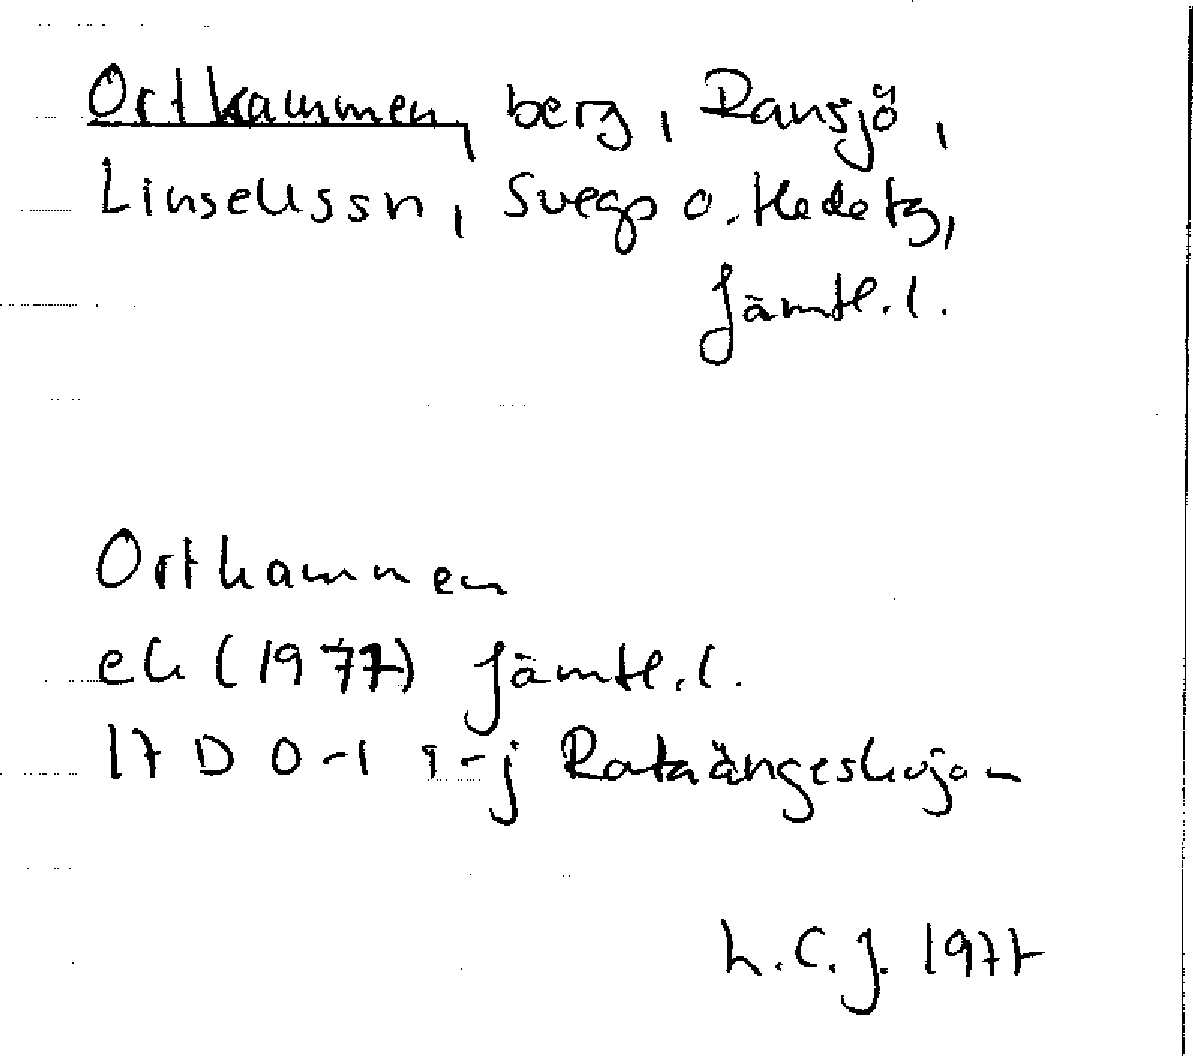 Ortkammen, berg, Ransjö,
Linsellssn, Svegs o. Hede tg,
Jämtl. l.
Ortkammen
ek (1977) Jämtl. l.
17 D 0-1 i-j Rataängeskojan
L. C. J. 1977